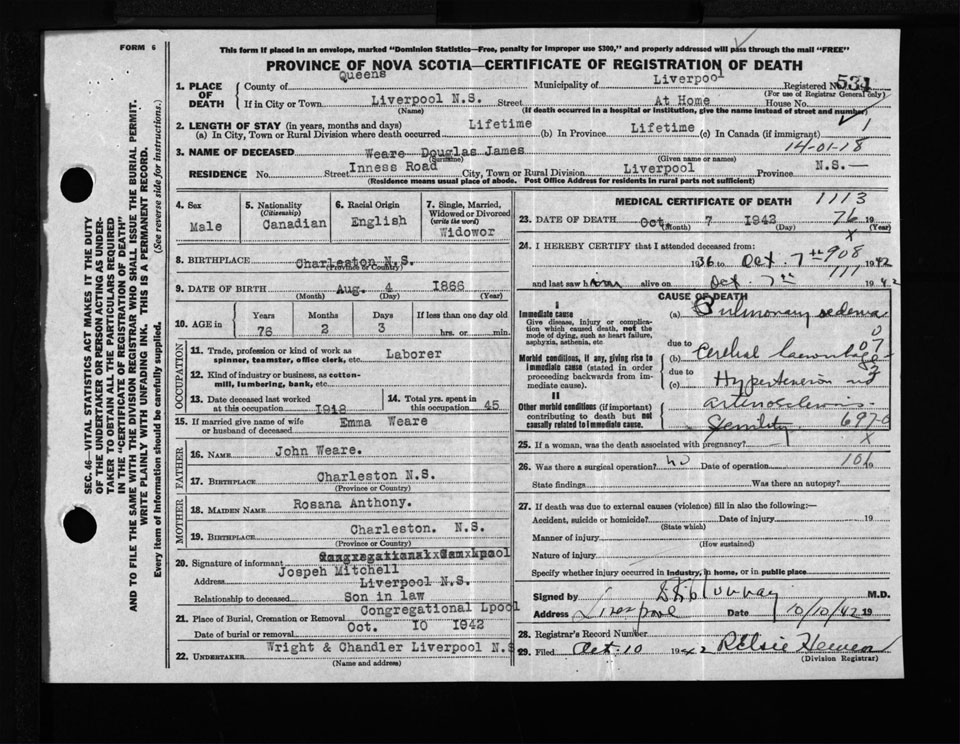 FORM 6
This form if placed in an envelope, marked "Dominion Statistics—Free, penalty for improper use $300," and properly addressed will pass through the mail "FREE"
PROVINCE OF NOVA SCOTIA—CERTIFICATE OF REGISTRATION OF DEATH
1. PLACE OF DEATH County of Queens Municipality of Liverpool Registered No. 531
(For use of Registrar General only)
If in City or Town Liverpool N.S. Street At Home House No.
(Name) (If death occurred in a hospital or institution, give the name instead of street and number)
2. LENGTH OF STAY (in years, months and days)
(a) In City, Town or Rural Division where death occurred Lifetime (b) In Province Lifetime (c) In Canada (if immigrant) 1
14-01-18
3. NAME OF DECEASED Weare Douglas James
(Surname) (Given name or names)
RESIDENCE No. Street Inness Road City, Town or Rural Division Liverpool Province N.S.—
(Residence means usual place of abode. Post Office Address for residents in rural parts not sufficient)
4. Sex Male
5. Nationality (Citizenship) Canadian
6. Racial Origin English
7. Single, Married, Widowed or Divorced (write the word) Widowor
8. BIRTHPLACE Charleston N.S.
(Province or Country)
9. DATE OF BIRTH Aug. 4 1866
(Month) (Day) (Year)
10. AGE in Years Months Days If less than one day old
76 2 3 hrs. or min.
OCCUPATION
11. Trade, profession or kind of work as spinner, teamster, office clerk, etc. Laborer
12. Kind of industry or business, as cotton-mill, lumbering, bank, etc.
13. Date deceased last worked at this occupation 1912
14. Total yrs. spent in this occupation 45
15. If married give name of wife or husband of deceased Emma Weare
FATHER
16. NAME John Weare.
17. BIRTHPLACE Charleston N.S.
(Province or Country)
MOTHER
18. MAIDEN NAME Rosana Anthony.
19. BIRTHPLACE Charleston. N.S.
(Province or Country)
20. Signature of informant Jospeh Mitchell
Address Liverpool N.S.
Relationship to deceased Son in law
21. Place of Burial, Cremation or Removal Congregational Lpool
Date of burial or removal Oct. 10 1942
22. UNDERTAKER Wright & Chandler Liverpool N.S
(Name and address)
MEDICAL CERTIFICATE OF DEATH 1113
23. DATE OF DEATH Oct. 7 1942 76 19
(Month) (Day) (Year)
x
24. I HEREBY CERTIFY that I attended deceased from:
1936 to Oct. 7th 1942 908
and last saw him alive on Oct. 7th 1942 111
CAUSE OF DEATH
I
Immediate cause
Give disease, injury or complication which caused death, not the mode of dying, such as heart failure, asphyxia, asthenia, etc
(a) Pulmonary oedema
due to
Morbid conditions, if any, giving rise to immediate cause (stated in order proceeding backwards from immediate cause).
(b) Cerebral haemorrhage
due to
(c) Hypertension and
arteriosclerosis.
II
Other morbid conditions (if important) contributing to death but not causally related to immediate cause.
Senility.
07
83
697-0
25. If a woman, was the death associated with pregnancy? x
26. Was there a surgical operation? no Date of operation 19 101
State findings Was there an autopsy?
27. If death was due to external causes (violence) fill in also the following:—
Accident, suicide or homicide? Date of injury 19
(State which)
Manner of injury
(How sustained)
Nature of injury
Specify whether injury occurred in Industry, in home, or in public place
Signed by M.D.
Address Liverpool Date 10/10/42 19
28. Registrar's Record Number
29. Filed Oct-10 1942
(Division Registrar)
SEC. 46—VITAL STATISTICS ACT MAKES IT THE DUTY
OF THE UNDERTAKER OR PERSON ACTING AS UNDER-
TAKER TO OBTAIN ALL THE PARTICULARS REQUIRED
IN THE "CERTIFICATE OF REGISTRATION OF DEATH" AND TO FILE THE SAME WITH THE DIVISION REGISTRAR WHO SHALL ISSUE THE BURIAL PERMIT.
WRITE PLAINLY WITH UNFADING INK. THIS IS A PERMANENT RECORD.
Every item of Information should be carefully supplied. (See reverse side for instructions.)